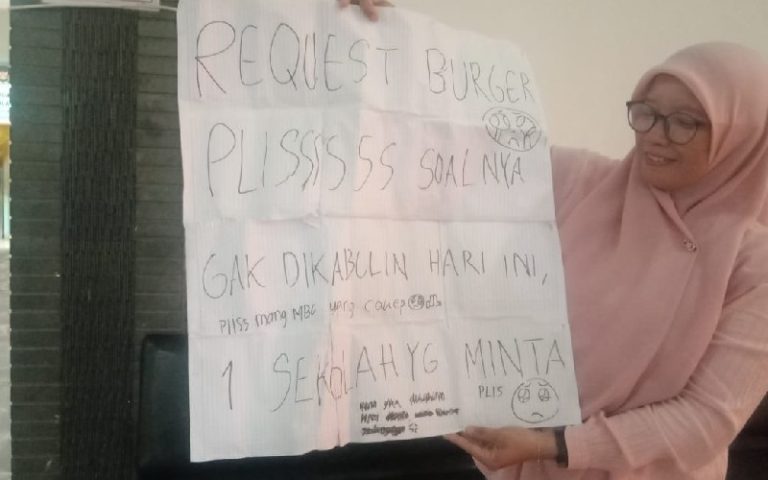 REQUEST BURGER
PLISSSSS SOALNYA
GAK DIKABULIN HARI INI,
PlISS mang MBG yang cakep
1 SEKOLAH YG MINTA
PLIS